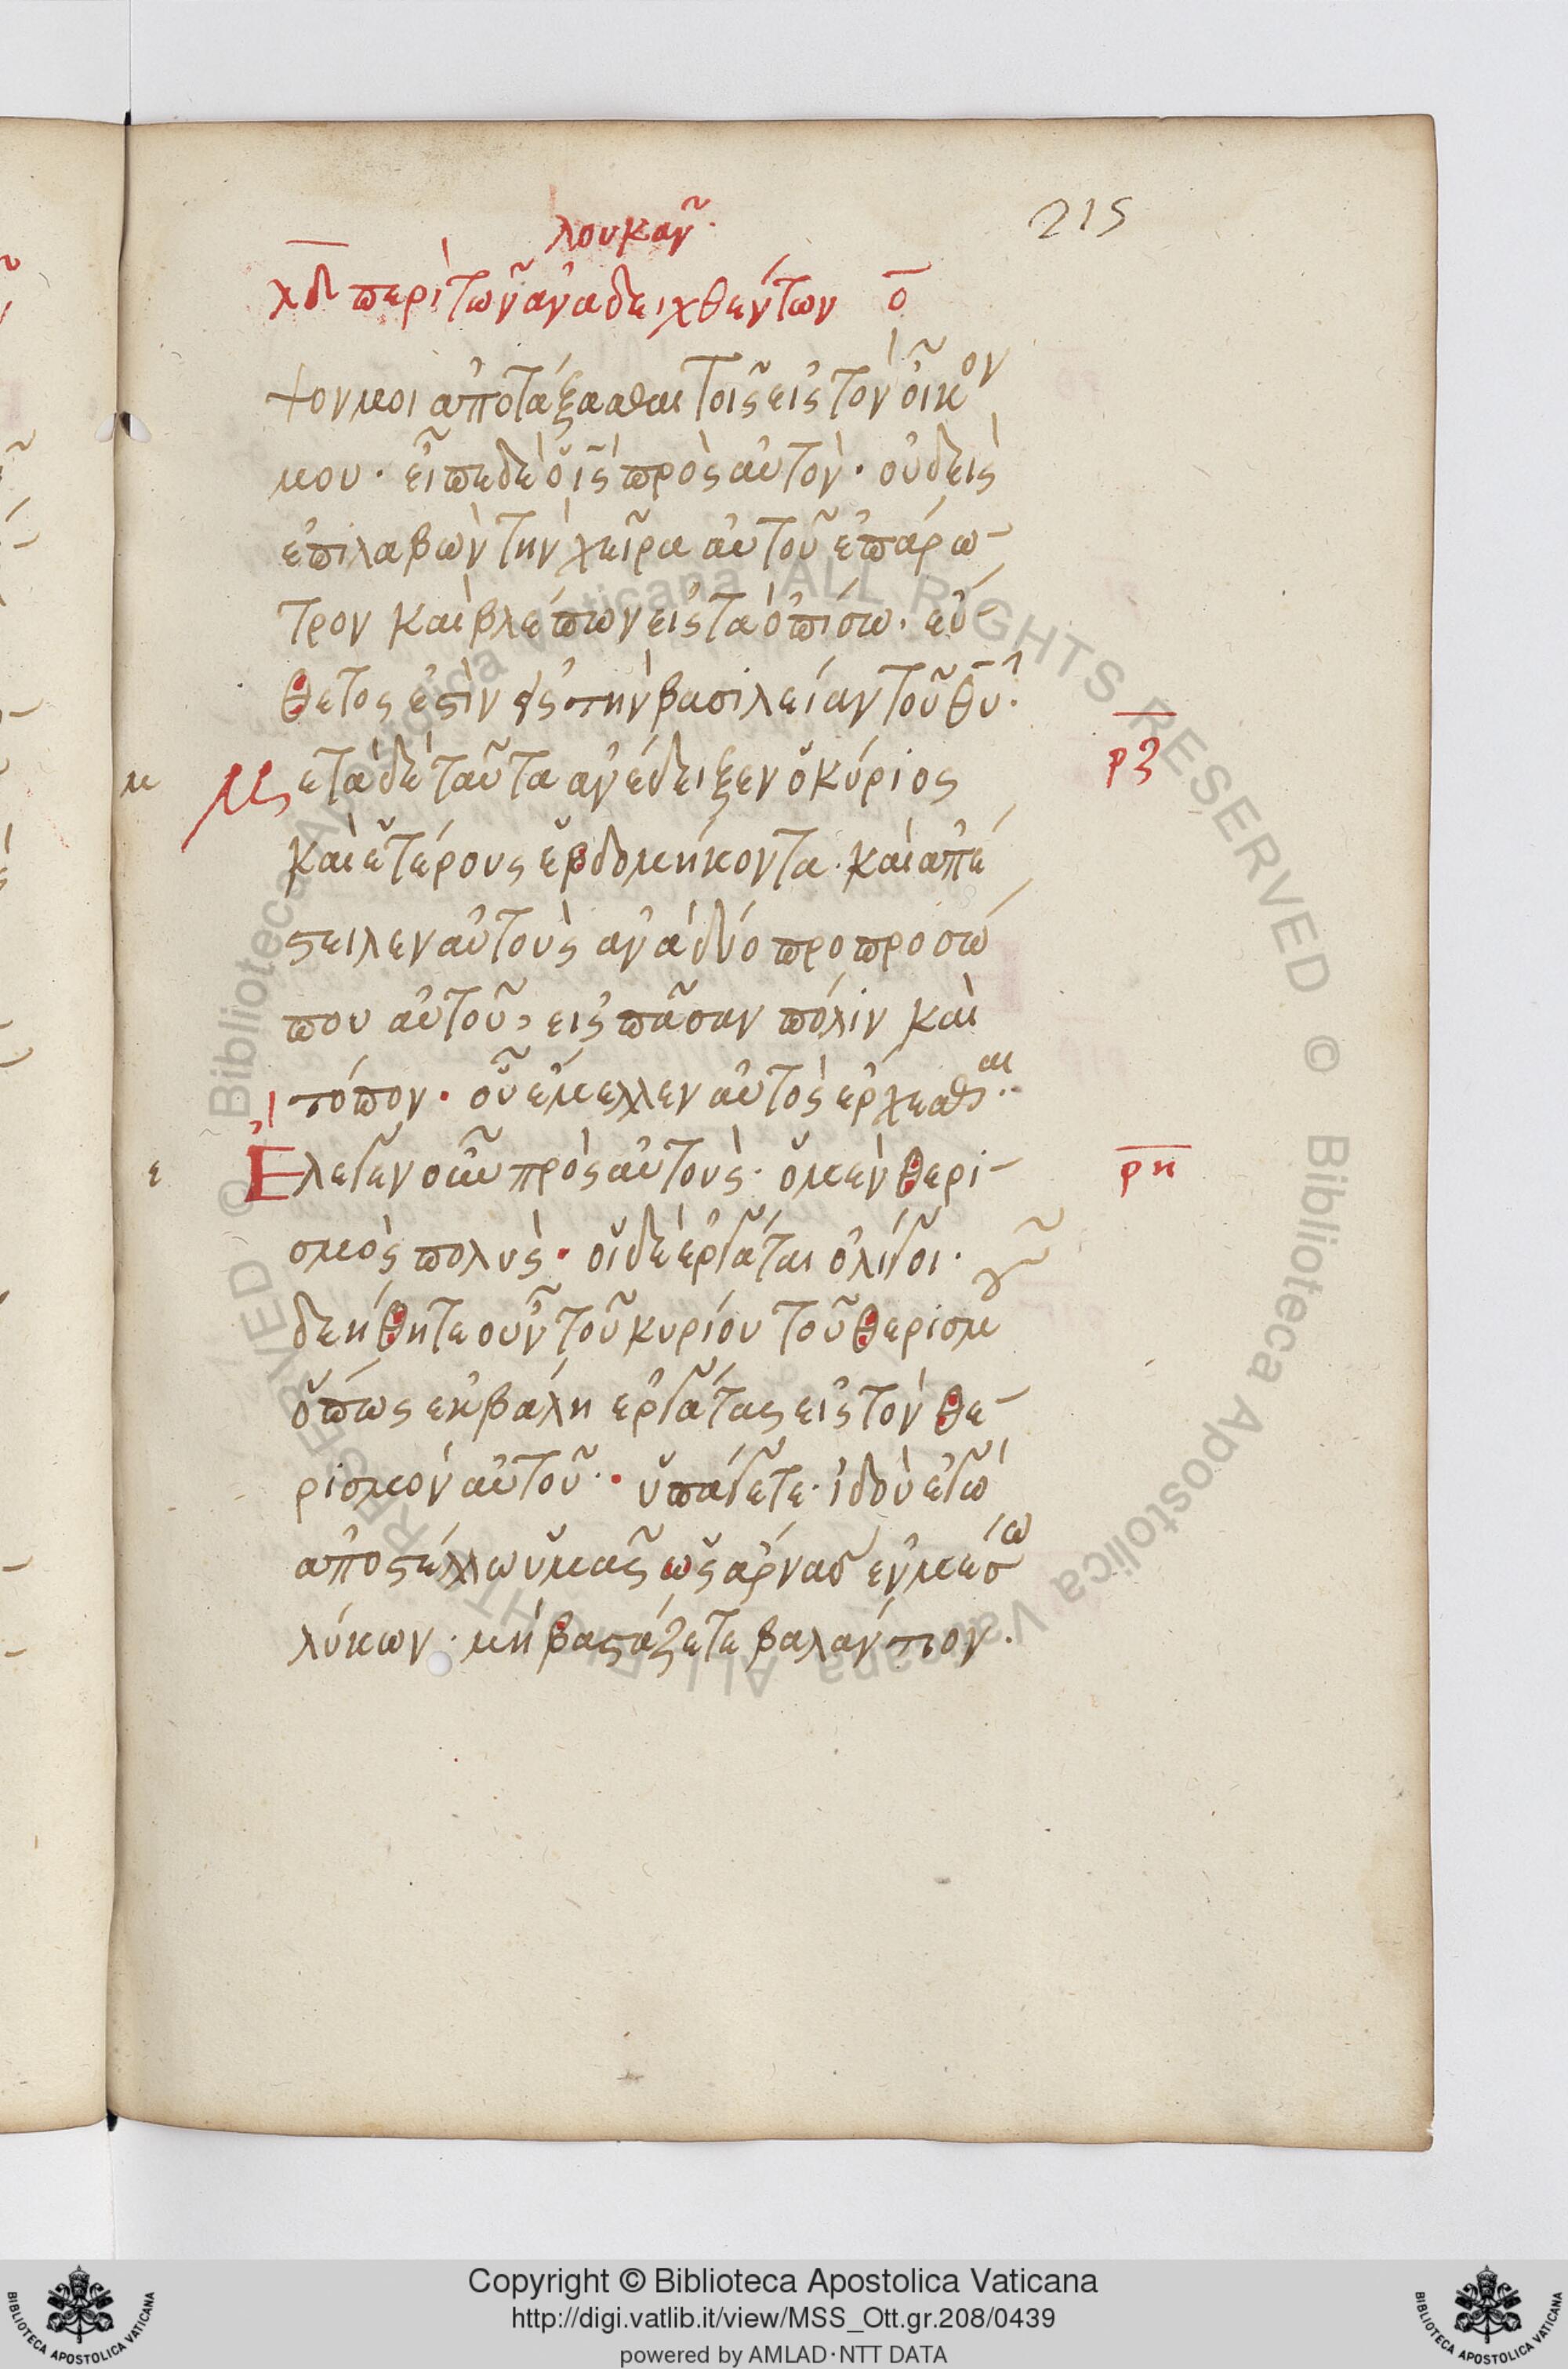 λουκᾶν.
215
λδ περὶ τῶν ἀναδειχθέντων ο̄
τον μοι ἀποτάξασθαι τοῖς εἰς τὸν οἶκον
μου. εἶπε δὲ ὁ ις̄ πρὸς αὐτόν. οὐδεὶς
ἐπιλαβὼν τὴν χεῖρα αὐτοῦ ἐπ' ἄρο-
τρον καὶ βλέπων εἰς τὰ ὀπίσω. εὔ-
θετός ἐστιν εἰς τὴν βασιλείαν τοῦ θῡ.
μ Μετὰ δὲ ταῦτα ἀνέδειξεν ὁ κύριος ρζ
καὶ ἑτέρους ἑβδομήκοντα. καὶ ἀπέ
στειλεν αὐτοὺς ἀνὰ δύο προ προσώ
που αὐτοῦ, εἰς πᾶσαν πόλιν καὶ
τόπον. οὗ ἔμελλεν αὐτὸς ἔρχεσθαι.
ε Ἔλεγεν οὖν πρὸς αὐτούς. ὁ μὲν θερι- ρη
σμὸς πολύς. οἱ δὲ ἐργάται ὀλίγοι.
δεήθητε οὖν τοῦ κυρίου τοῦ θερισμοῦ
ὅπως ἐκβάλη ἐργάτας εἰς τὸν θε-
ρισμὸν αὐτοῦ. ὑπάγετε. ἰδοὺ ἐγὼ
ἀποστέλλω ὑμᾶς ὡς ἄρνας ἐν μέσω
λύκων. μὴ βαστάζετε βαλάντιον.
© Biblioteca Apostolica Vaticana ALL RIGHTS RESERVED © Biblioteca Apostolica Vaticana ALL RIGHTS RESERVED
Copyright © Biblioteca Apostolica Vaticana
http://digi.vatlib.it/view/MSS_Ott.gr.208/0439
powered by AMLAD·NTT DATA
BIBLIOTECA APOSTOLICA VATICANA
BIBLIOTECA APOSTOLICA VATICANA